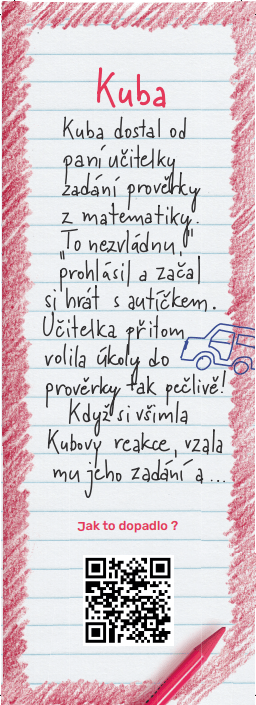 Kuba
Kuba dostal od
paní učitelky
zadání prověrky
z matematiky.
"To nezvládnu,"
prohlásil a začal
si hrát s autíčkem.
Učitelka přitom
volila úkoly do
prověrky tak pečlivě!
Když si všimla
Kubovy reakce, vzala
mu jeho zadání a ...
Jak to dopadlo ?